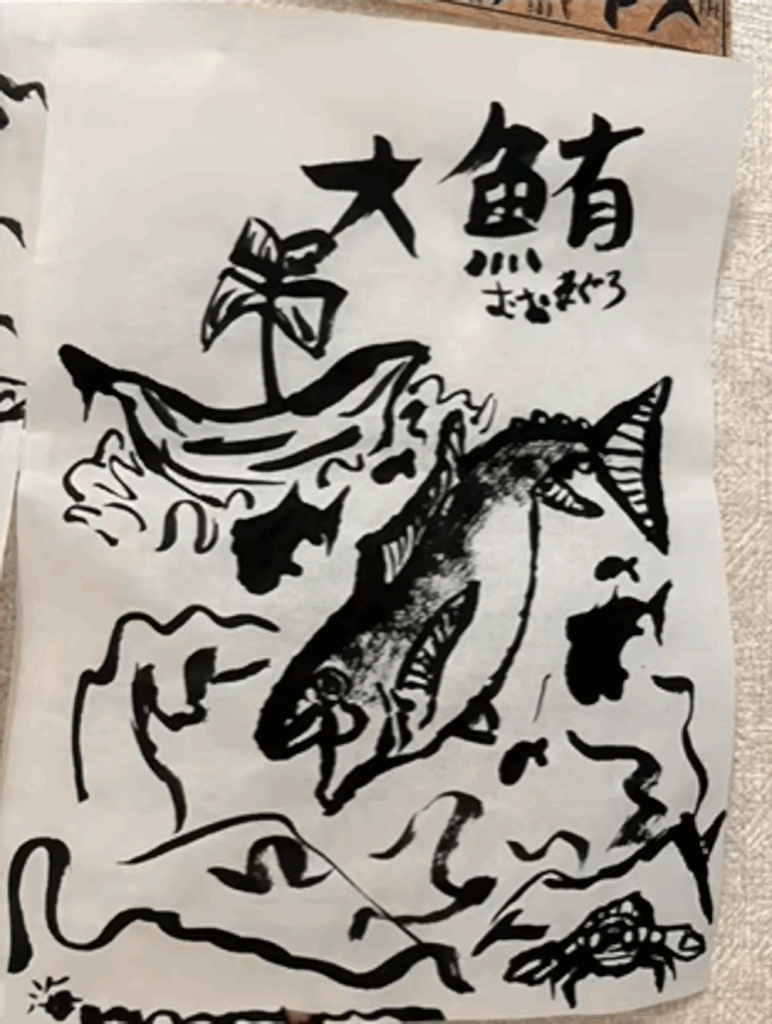 大鮪
おおまぐろ